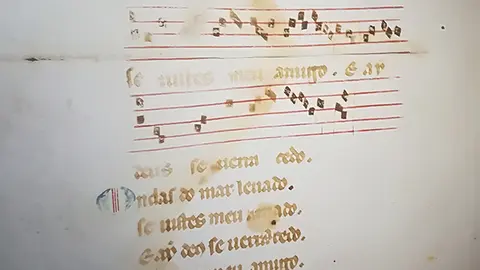 se uistes meu amigo. E ay
deus se uerra cedo.
Ondas do mar leuado.
se uistes meu amado.
E ay deo se uerra cedo.
meu amigo.